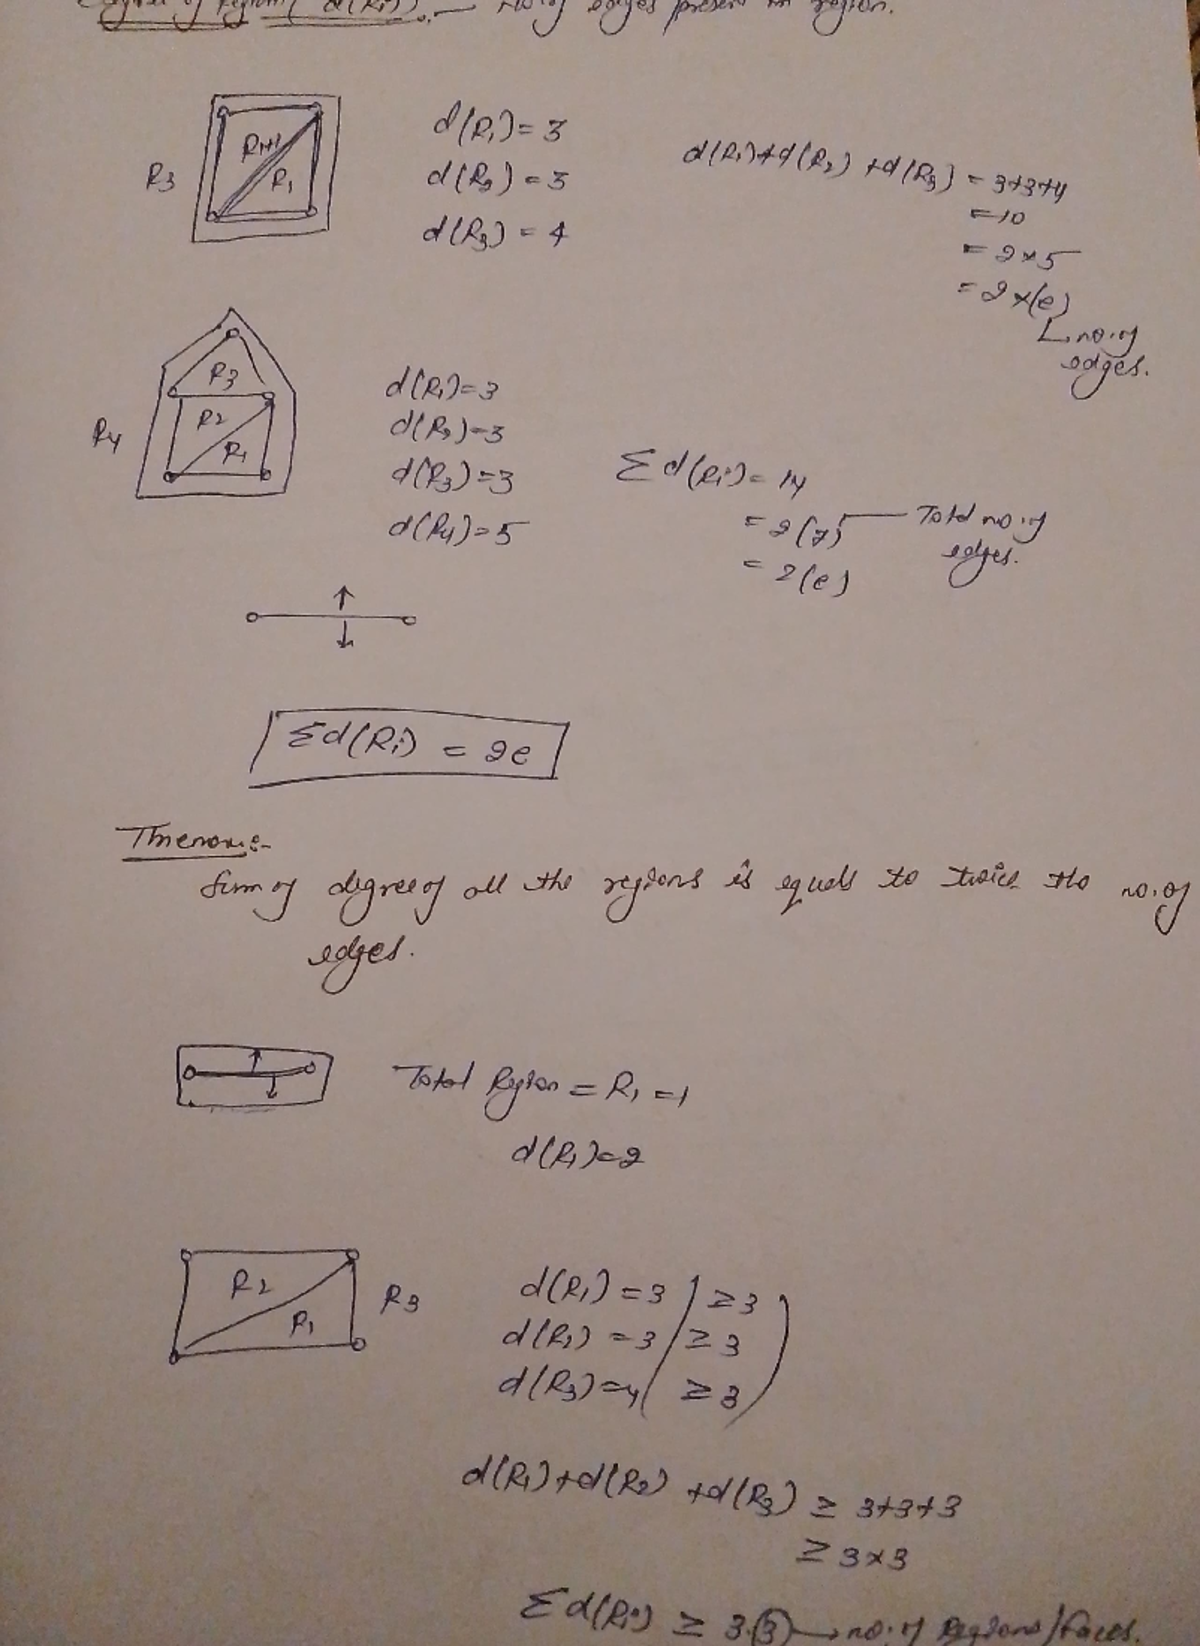 Degree of Region ( d(Ri) ) :— No. of edges present in region.
R3
R1
d(R1) = 3
d(R2) = 3
d(R3) = 4
d(R1)+d(R2) +d(R3) = 3+3+4
= 10
= 2×5
= 2×(e)
no. of
edges.
R4
R3
R2
R1
d(R1)=3
d(R2)=3
d(R3)=3
d(R4)=5
Σd(Ri) = 14
= 2(7) Total no. of
edges.
= 2(e)
↑
↓
Σd(Ri) = 2e
Sum of degree of all the regions is equals to twice the no. of
edges.
Total Region = R1 =1
d(R1)=2
R2
R1
R3
d(R1) = 3 ≥3
d(R2) = 3 ≥3
d(R3)=4 ≥3
d(R1)+d(R2) +d(R3) ≥ 3+3+3
≥ 3×3
Σd(Ri) ≥ 3.(3) → no. of Regions/faces.